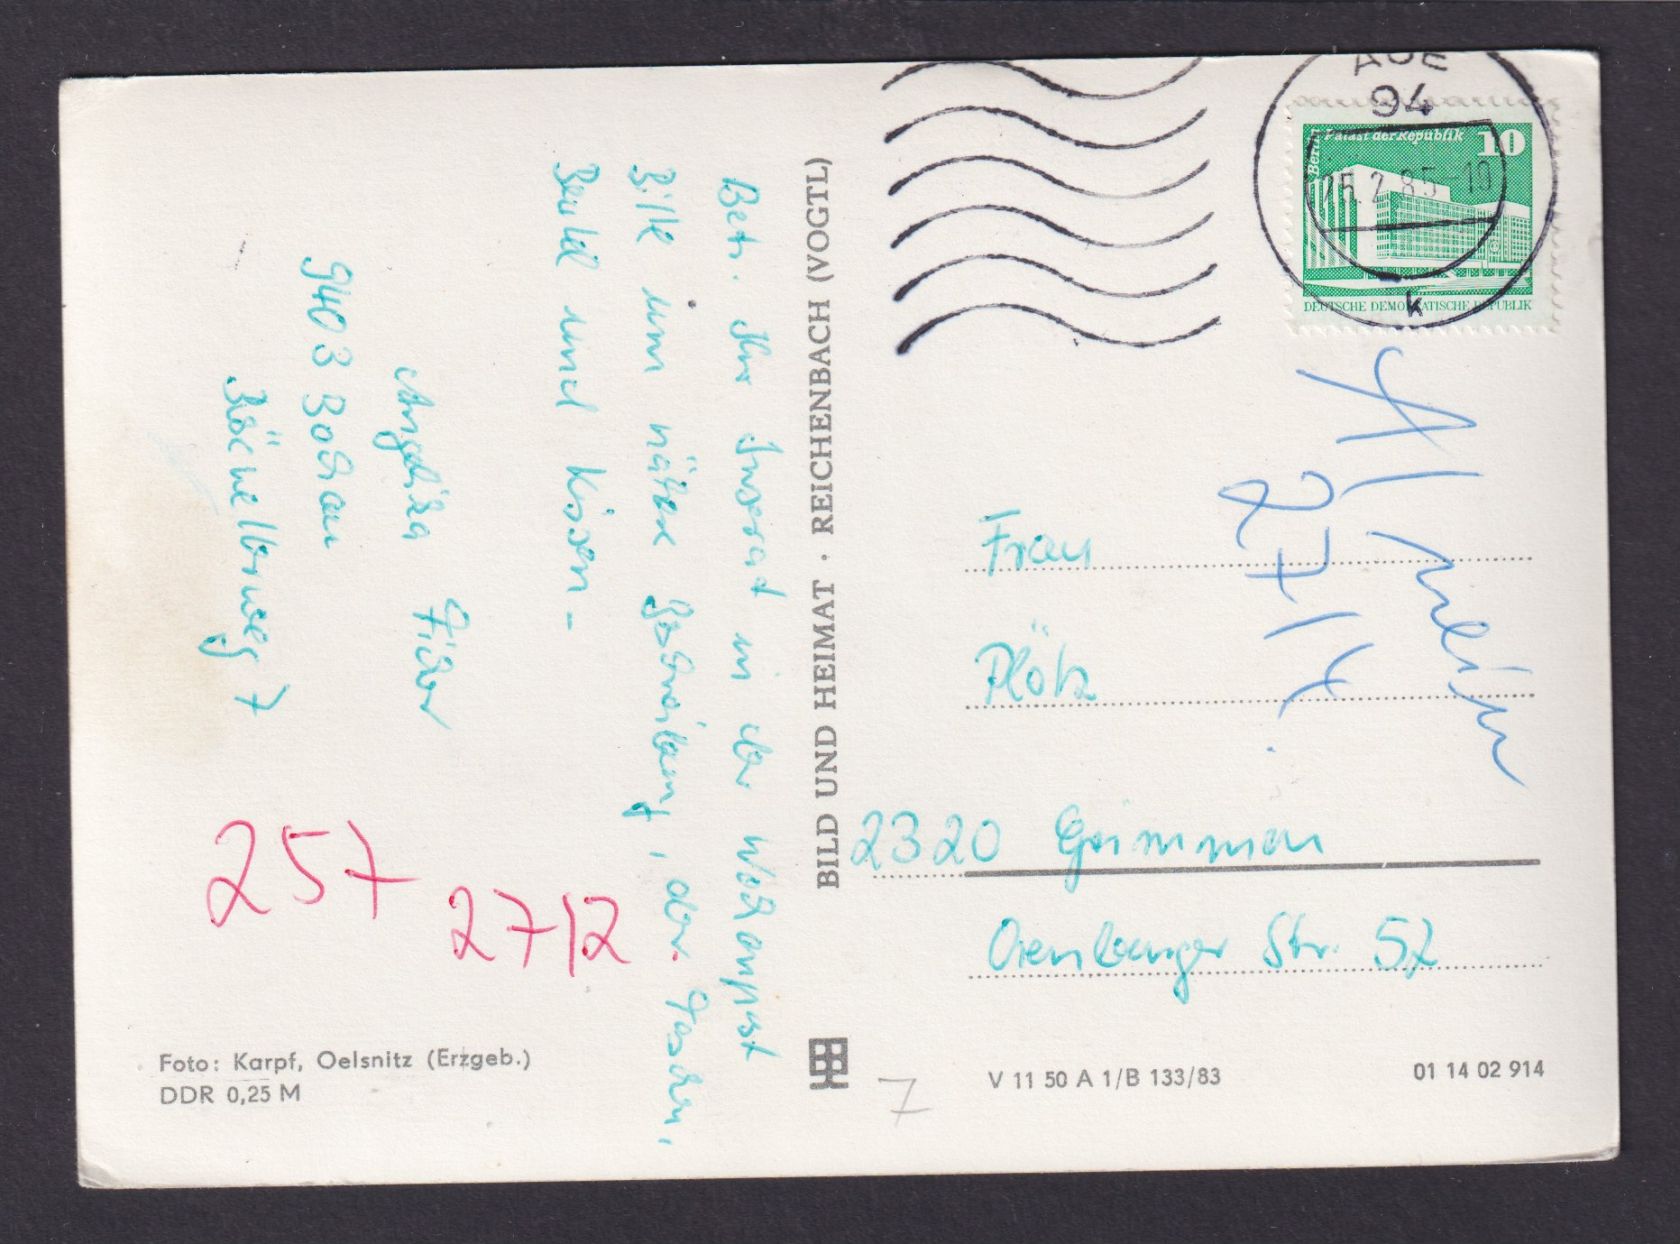 Betr. Ihr Inserat in der Wochenpost
Bitte um nähere Beschreibung, der Taschen,
Beutel und Kissen –
Angelika
9403 Bockau
7
257
2712
Foto: Karpf, Oelsnitz (Erzgeb.)
DDR 0,25 M
BILD UND HEIMAT · REICHENBACH (VOGTL)
AUE
94
25.2.85-10
k
Berlin Palast der Republik
10
DEUTSCHE DEMOKRATISCHE REPUBLIK
27/4.
Frau
Plötz
2320 Grimmen
Str. 52
7
V 11 50 A 1/B 133/83
01 14 02 914